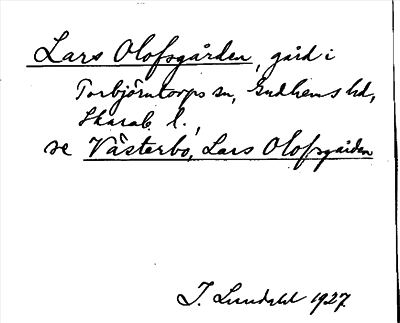 Lars Olofsgården, gård i
Torbjörntorps sn, Gudhems hd,
Skarab. l.,
se Västerbo, Lars Olofsgården
I. Lundahl 1927.